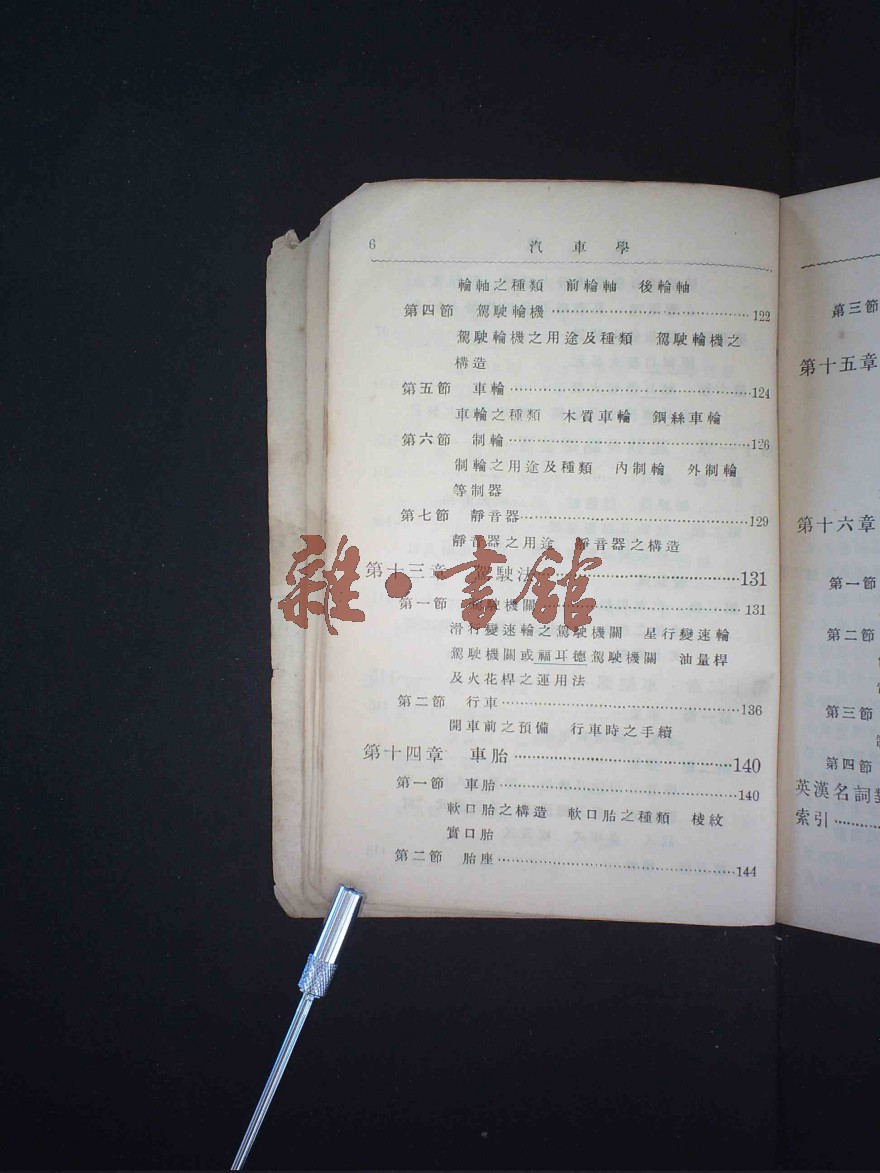 6 汽車學
輪軸之種類 前輪軸 後輪軸
第四節 駕駛輪機……122
駕駛輪機之用途及種類 駕駛輪機之
構造
第五節 車輪……124
車輪之種類 木質車輪 鋼絲車輪
第六節 制輪……126
制輪之用途及種類 內制輪 外制輪
等制器
第七節 靜音器……129
靜音器之用途 靜音器之構造
第十三章 駕駛法……131
第一節 駕駛機關……131
滑行變速輪之駕駛機關 星行變速輪
駕駛機關或福耳德駕駛機關 油量桿
及火花桿之運用法
第二節 行車……136
開車前之預備 行車時之手續
第十四章 車胎……140
第一節 車胎……140
軟口胎之構造 軟口胎之種類 棱紋
實口胎
第二節 胎座……144
雜·書館
第三節
第十五章
第十六章
第一節
第二節
第三節
第四節
英漢名詞
索引……